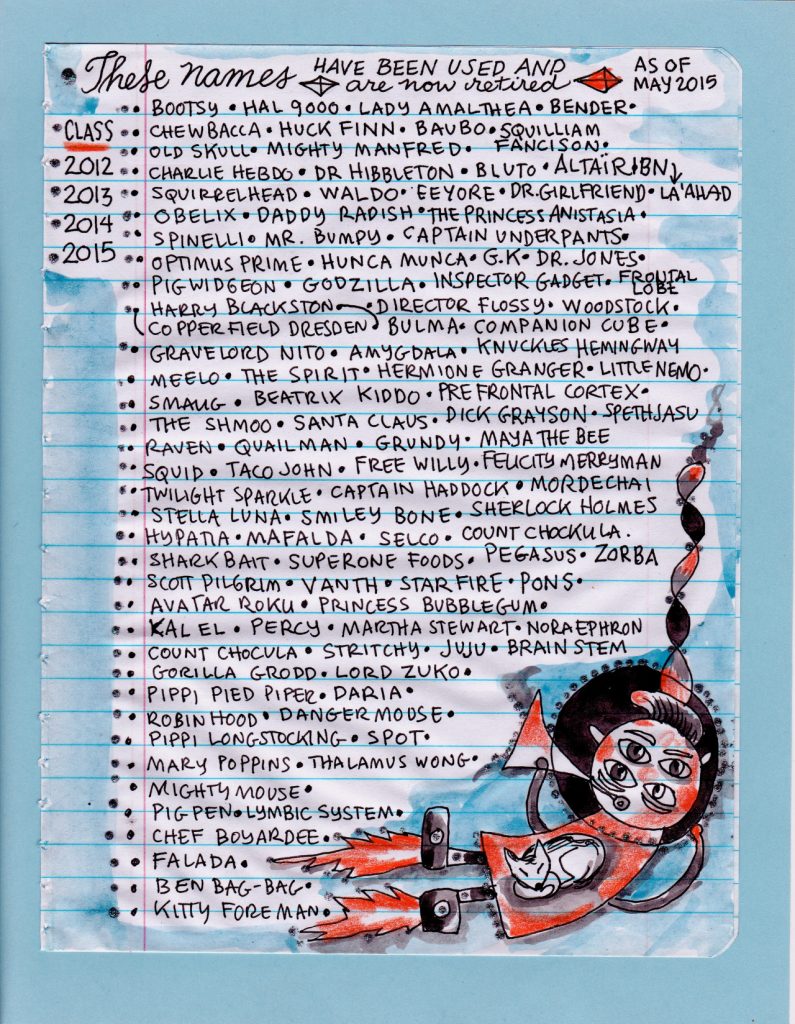 These names HAVE BEEN USED AND are now retired AS OF MAY 2015
CLASS
2012
2013
2014
2015
BOOTSY • HAL 9000 • LADY AMALTHEA • BENDER •
CHEWBACCA • HUCK FINN • BAUBO • SQUILLIAM FANCISON •
OLD SKULL • MIGHTY MANFRED •
CHARLIE HEBDO • DR HIBBLETON • BLUTO • ALTAÏR IBN LA'AHAD
SQUIRRELHEAD • WALDO • EEYORE • DR. GIRLFRIEND •
OBELIX • DADDY RADISH • THE PRINCESS ANISTASIA •
SPINELLI • MR. BUMPY • CAPTAIN UNDERPANTS •
OPTIMUS PRIME • HUNCA MUNCA • G.K • DR. JONES •
PIGWIDGEON • GODZILLA • INSPECTOR GADGET • FRONTAL LOBE
HARRY BLACKSTON • DIRECTOR FLOSSY • WOODSTOCK •
COPPERFIELD DRESDEN BULMA • COMPANION CUBE •
GRAVELORD NITO • AMYGDALA • KNUCKLES HEMINGWAY
MEELO • THE SPIRIT • HERMIONE GRANGER • LITTLE NEMO •
SMAUG • BEATRIX KIDDO • PREFRONTAL CORTEX •
THE SHMOO • SANTA CLAUS • DICK GRAYSON • SPETHJASU
RAVEN • QUAILMAN • GRUNDY • MAYA THE BEE
SQUID • TACO JOHN • FREE WILLY • FELICITY MERRYMAN
TWILIGHT SPARKLE • CAPTAIN HADDOCK • MORDECHAI
STELLA LUNA • SMILEY BONE • SHERLOCK HOLMES
HYPATIA • MAFALDA • SELCO • COUNT CHOCKULA.
SHARK BAIT • SUPERONE FOODS • PEGASUS • ZORBA
SCOTT PILGRIM • VANTH • STAR FIRE • PONS •
AVATAR ROKU • PRINCESS BUBBLEGUM •
KAL EL • PERCY • MARTHA STEWART • NORA EPHRON
COUNT CHOCULA • STRITCHY • JUJU • BRAIN STEM
GORILLA GRODD • LORD ZUKO •
PIPPI PIED PIPER • DARIA •
ROBIN HOOD • DANGERMOUSE •
PIPPI LONGSTOCKING • SPOT •
MARY POPPINS • THALAMUS WONG •
MIGHTY MOUSE •
PIGPEN • LYMBIC SYSTEM •
CHEF BOYARDEE •
FALADA •
BEN BAG-BAG •
KITTY FOREMAN •